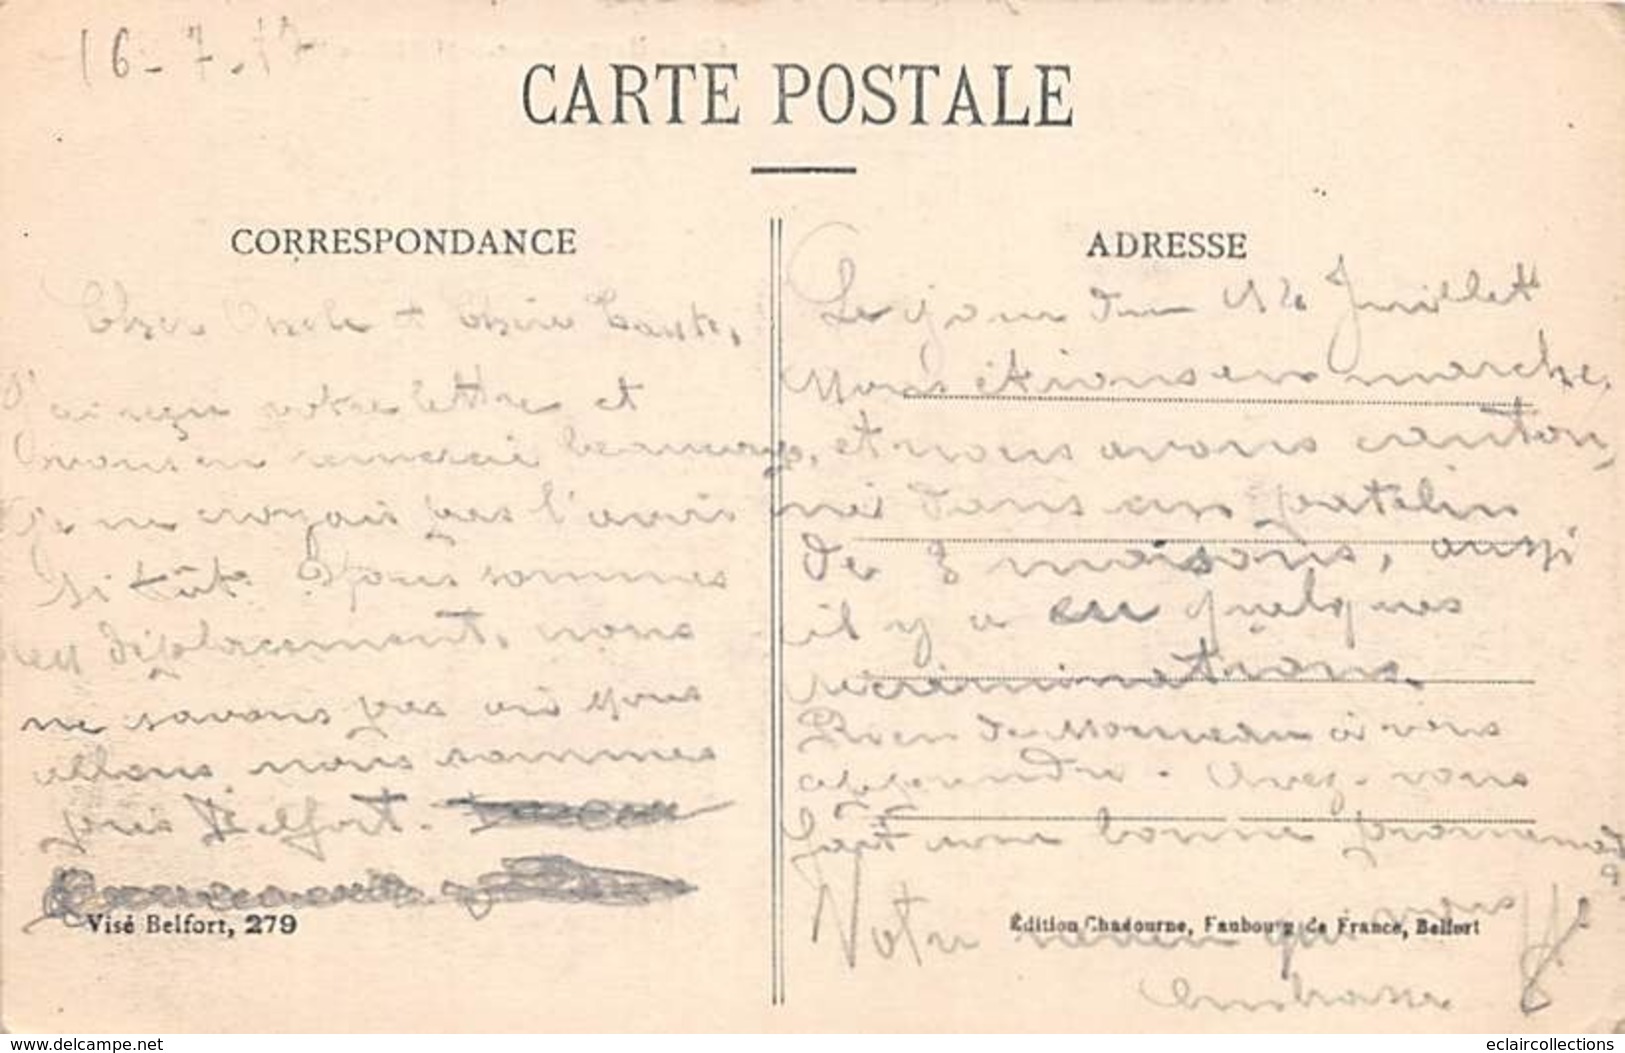 16-7-17
CARTE POSTALE
CORRESPONDANCE
Cher Oncle et Chère Tante,
J'ai reçu votre lettre et
vous en remercie beaucoup,
Je ne croyais pas l'avoir
si tôt. Nous sommes
en déplacement, nous
ne savons pas où nous
allons nous sommes
près Belfort.
Visé Belfort, 279
ADRESSE
Le jour du 14 Juillet
Nous étions en marche,
et nous avons canton,
né dans un patelin
de 3 maisons, aussi
il y a eu quelques
récriminations.
Rien de nouveau à vous
apprendre. Avez-vous
fait une bonne promenade
?
Votre neveu qui vous
embrasse
Édition Chadourne, Faubourg de France, Belfort
eclaircollections